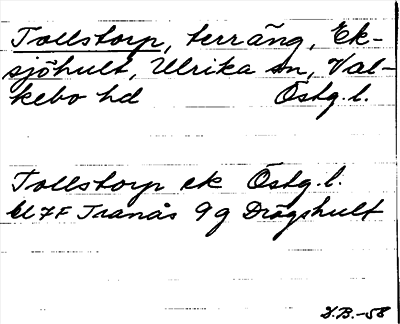 Tollstorp, terräng, Ek-
sjöhult, Ulrika sn, Val-
kebo hd Östg. l.
Tollstorp ek Östg. l.
bl 7F Tranås 9g Drågshult
D.B.-58